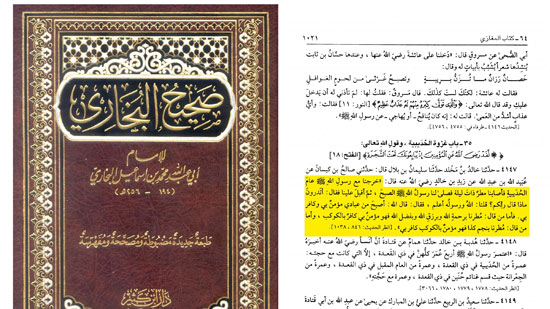 صحيح البخاري
للإمام
أبي عبد الله محمد بن إسماعيل البخاري
(١٩٤ - ٢٥٦هـ)
طبعة جديدة مضبوطة ومصححة ومفهرسة
دار ابن كثير
٦٤ - كتاب المغازي
١٠٢٦
أبي الضُّحى عن مسروقٍ قال: «دخلنا على عائشةَ رضيَ اللَّهُ عنها، وعندها حسّانُ بن ثابت
يُنشِدُها شعراً يُشبِّبُ بأبياتٍ له وقال:
حَصانٌ رَزانٌ ما تُزَنُّ بِرِيبةٍ وتُصبحُ غَرْثى من لحومِ الغوافلِ
فقالت له عائشة: لكنَّكَ لستَ كذلك. قال مسروق: فقلتُ لها: لمَ تأذني له أن يدخل
عليكِ وقد قال الله تعالى: ﴿وَالَّذِي تَوَلَّى كِبْرَهُ مِنْهُمْ لَهُ عَذَابٌ عَظِيمٌ﴾ [النور: ١١] فقالت: وأيُّ
عذابٍ أشدُّ من العمى. قالت له: إنه كان يُنافحُ - أو يُهاجي - عن رسولِ الله ﷺ».
٣٥ - باب غزوة الحُدَيبية، وقولِ الله تعالى:
﴿لَقَدْ رَضِيَ اللَّهُ عَنِ الْمُؤْمِنِينَ إِذْ يُبَايِعُونَكَ تَحْتَ الشَّجَرَةِ﴾ [الفتح: ١٨]
٤١٤٧ - حدَّثنا خالدُ بن مَخلدٍ حدَّثنا سليمانُ بن بلال قال: حدَّثني صالحُ بن كيسانَ عن
عُبيدِ الله بن عبد الله عن زيدِ بن خالدٍ رضيَ الله عنه قال: «خرجنا مع رسولِ الله ﷺ عامَ
الحُدَيبية فأصابنا مطرٌ ذاتَ ليلة فصلى لنا رسولُ الله ﷺ الصبحَ، ثم أقبلَ علينا فقال: أتدرون
ماذا قال ربُّكم؟ قلنا: اللهُ ورسولُه أعلم. فقال: قال الله: أصبحَ من عبادي مؤمنٌ بي وكافرٌ
بي. فأما من قال: مُطِرنا برحمةِ الله وبرزقِ الله وبفضلِ الله فهو مؤمنٌ بي كافرٌ بالكوكب، وأما
من قال: مُطِرنا بنجمِ كذا فهو مؤمنٌ بالكوكبِ كافرٌ بي». [انظر الحديث: ٨٤٦، ١٠٣٨].
٤١٤٨ - حدَّثنا هُدبةُ بن خالدٍ حدَّثنا همامٌ عن قتادةَ أنَّ أنساً رضيَ الله عنه أخبرَهُ
قال: «اعتمرَ رسولُ الله ﷺ أربعَ عُمَرٍ كلُّهنَّ في ذي القَعدة، إلا التي كانت مع حجته:
عمرةً من الحُدَيبيةِ في ذي القعدة، وعمرةً من العامِ المقبلِ في ذي القعدة، وعمرةً من
الجِعرانةِ حيثُ قسمَ غنائمَ حُنينٍ في ذي القعدة، وعمرةً مع حَجَّته».
[انظر الحديث: ١٧٧٨، ١٧٧٩، ١٧٨٠، ٣٠٦٦].
٤١٤٩ - حدَّثنا سعيدُ بن الربيعِ حدَّثنا عليُّ بن المبارك عن يحيى عن عبد الله بن أبي قتادة